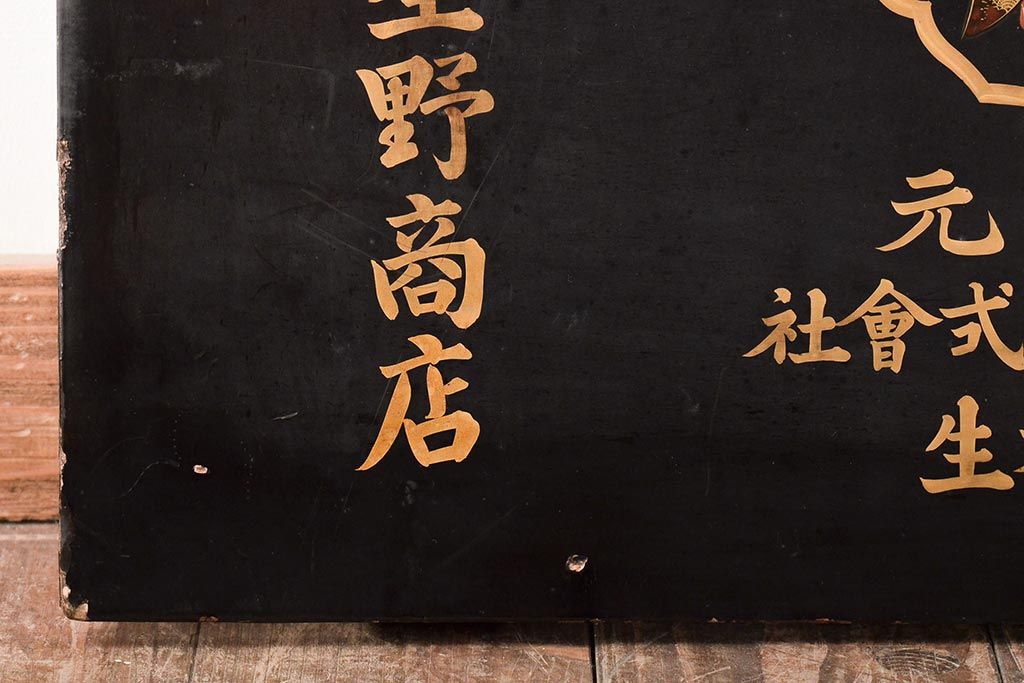 元
式會社
生
野商店